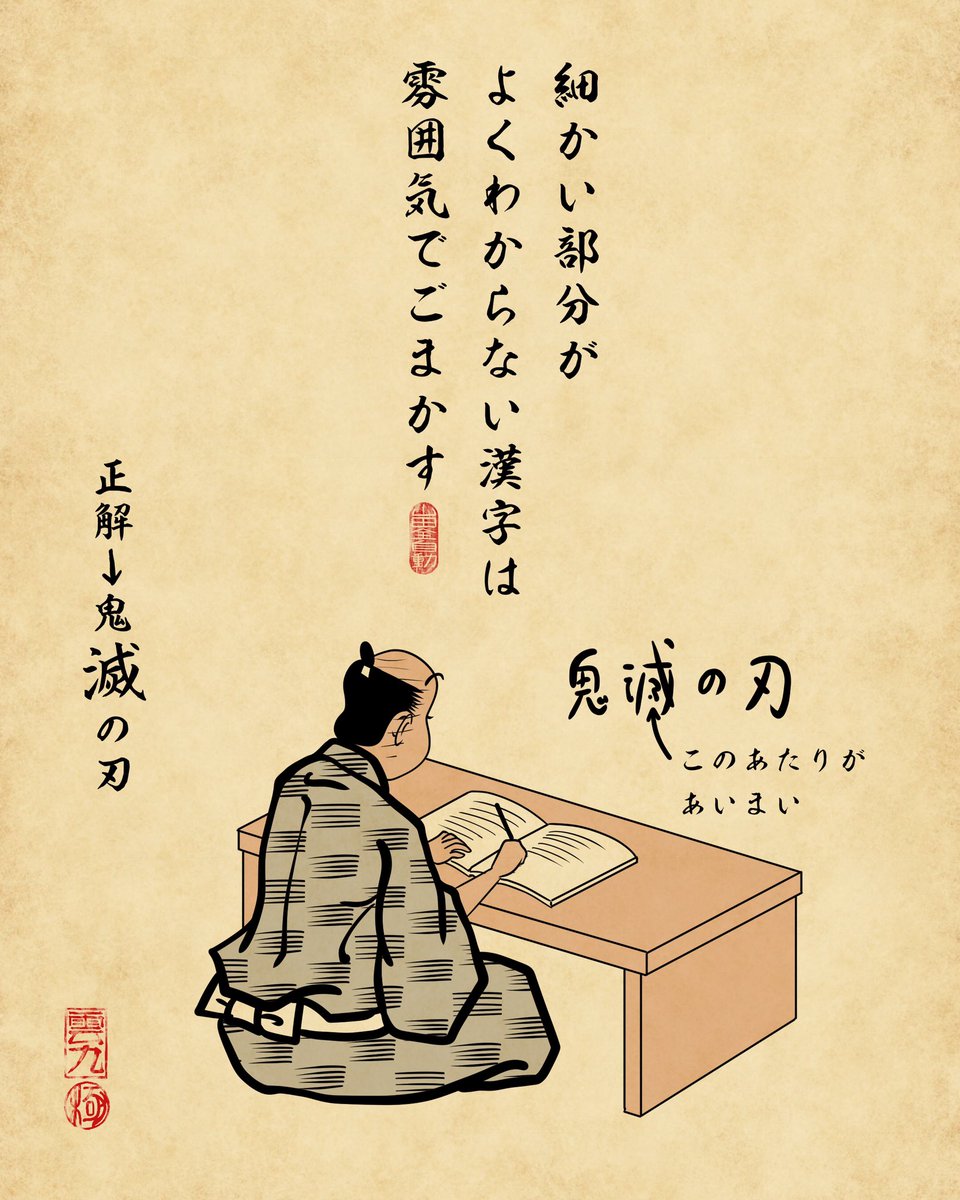 細かい部分が
よくわからない漢字は
雰囲気でごまかす
鬼滅の刃
このあたりが
あいまい
正解→鬼滅の刃